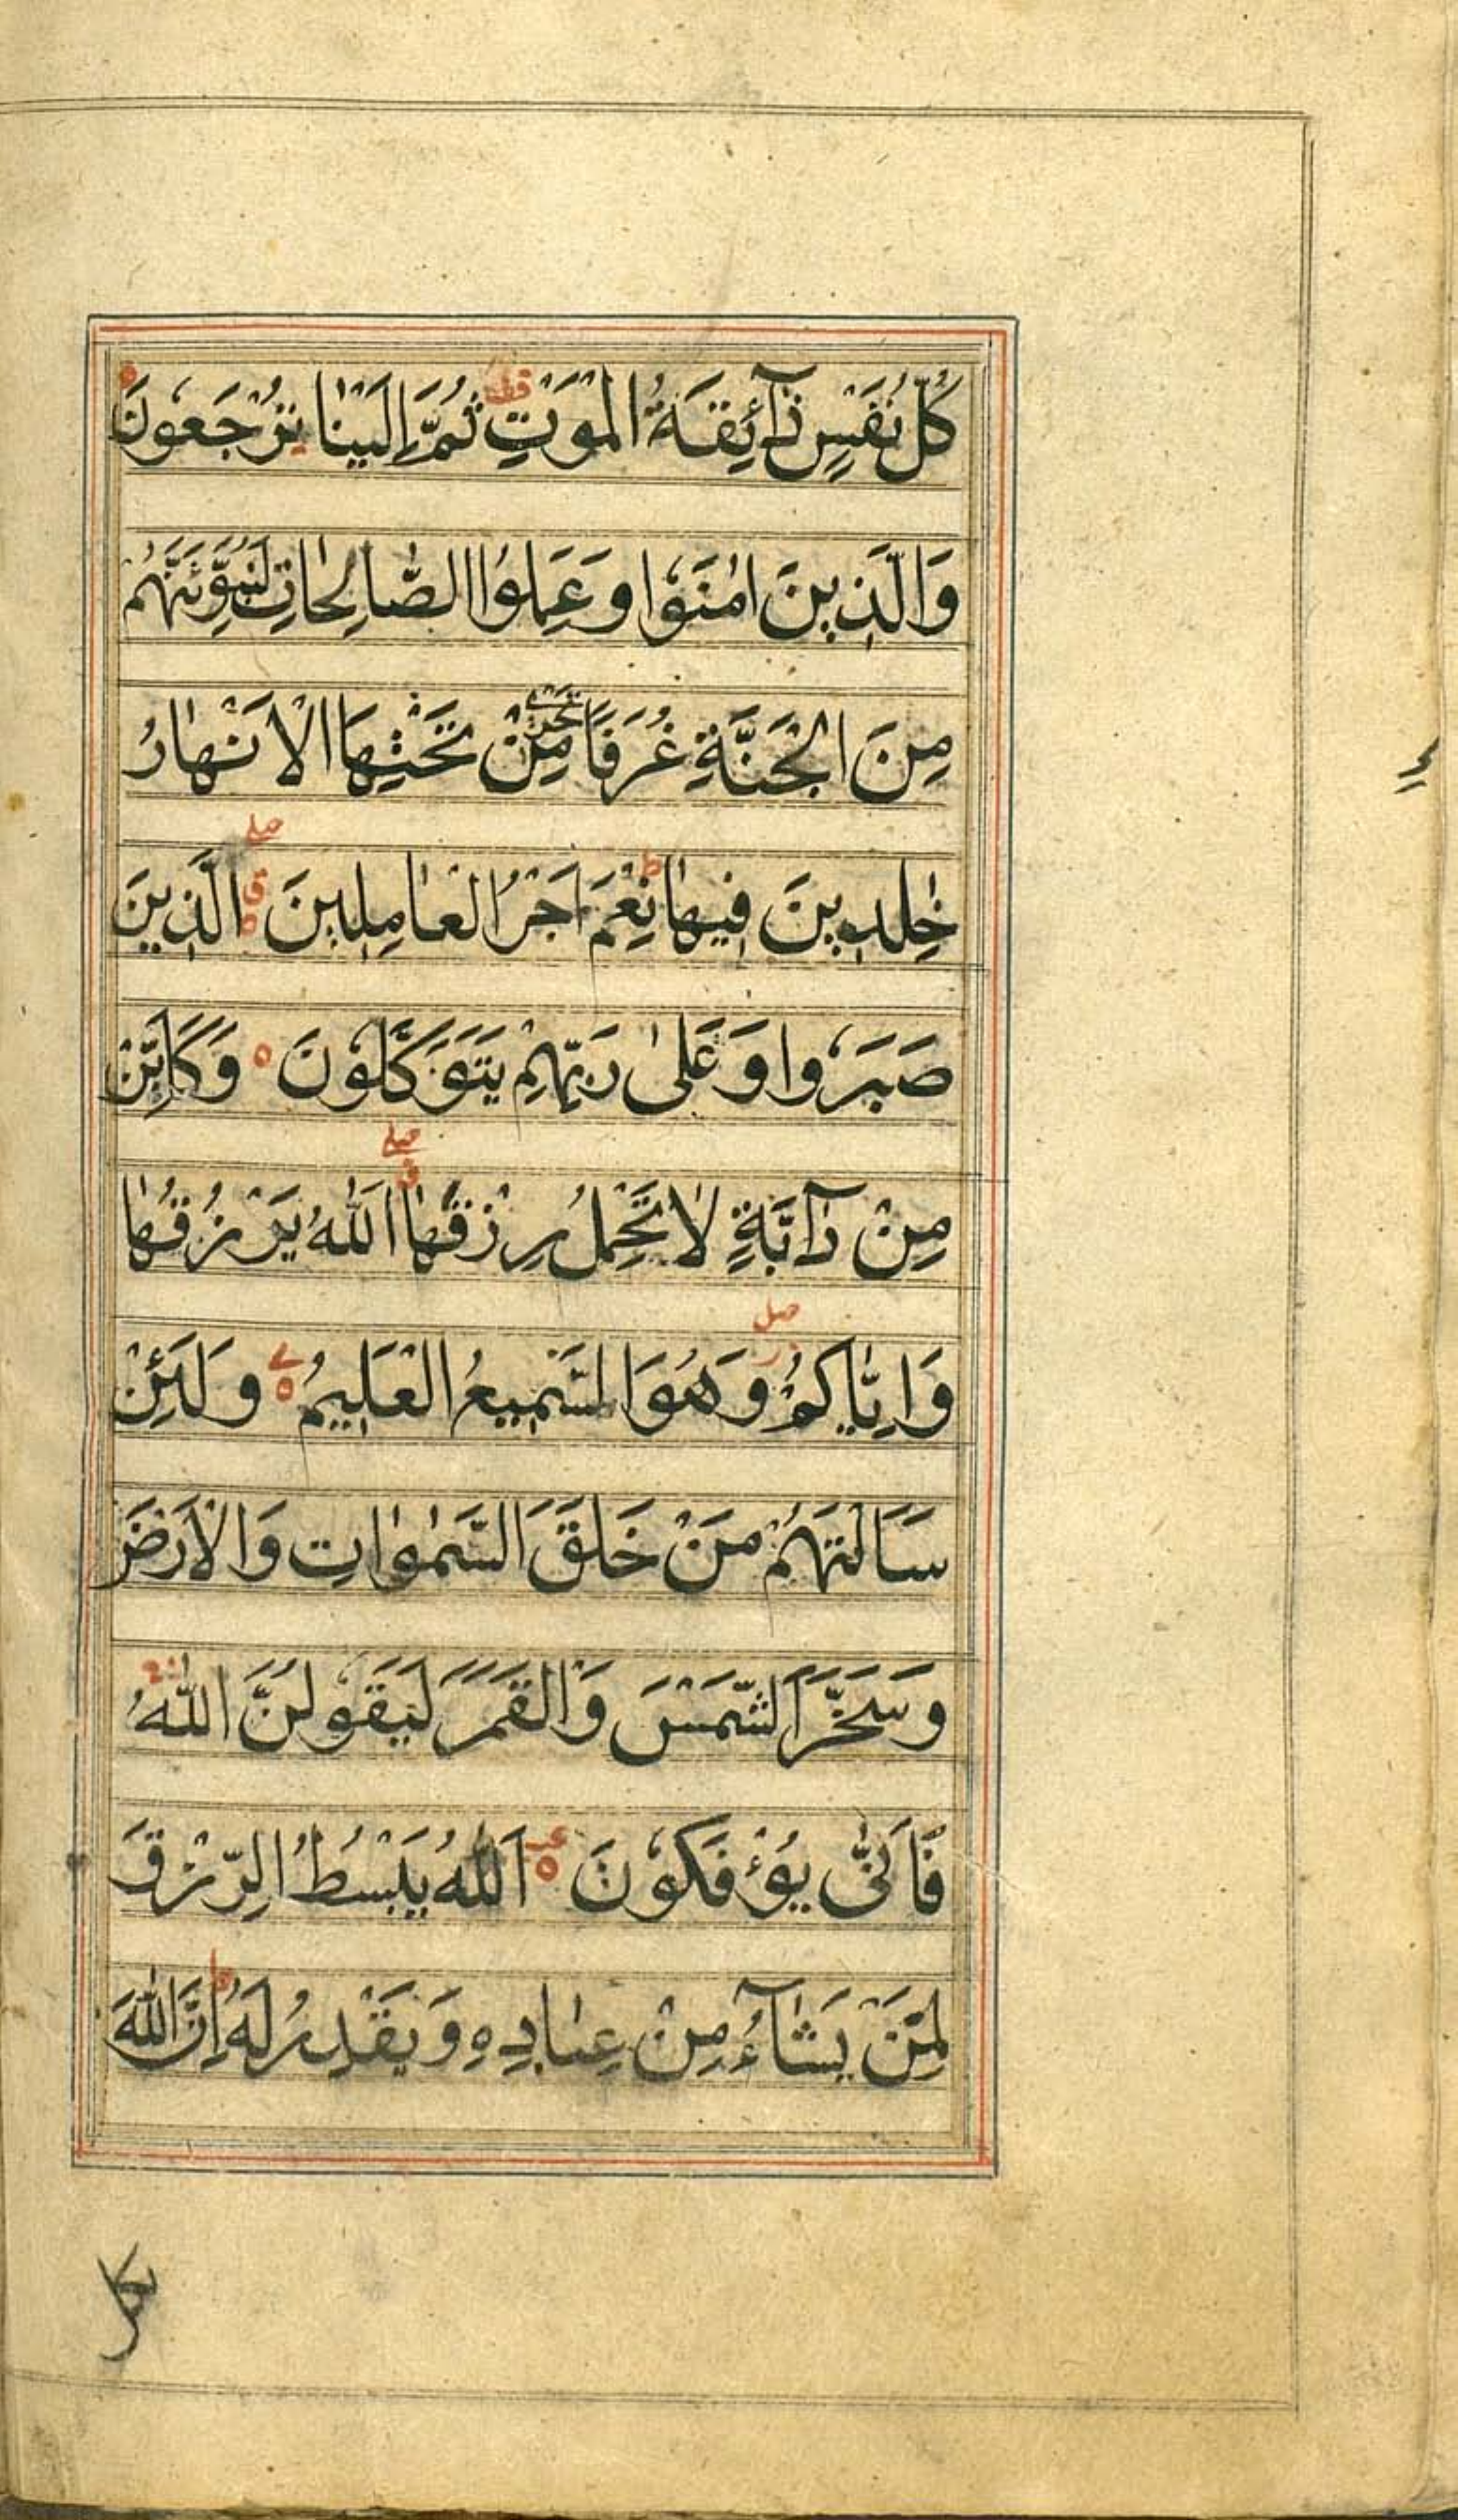 كُلُّ نَفْسٍ ذَآئِقَةُ الْمَوْتِ ثُمَّ اِلَيْنَا تُرْجَعُونَ
وَالَّذِينَ اٰمَنُوْا وَعَمِلُوا الصَّالِحَاتِ لَنُبَوِّئَنَّهُمْ
مِنَ الْجَنَّةِ غُرَفًا تَجْرِي مِنْ تَحْتِهَا الْاَنْهَارُ
خٰلِدِينَ فِيهَا ط نِعْمَ اَجْرُ الْعَامِلِينَ صلے ق الَّذِينَ
صَبَرُوْا وَعَلىٰ رَبِّهِمْ يَتَوَكَّلُوْنَ ٥ وَكَاَيِّنْ
مِنْ دَآبَّةٍ لَا تَحْمِلُ رِزْقَهَا صلے ق اَللّٰهُ يَرْزُقُهَا
وَاِيَّاكُمْ صلے وَهُوَ السَّمِيعُ الْعَلِيمُ ٥ وَلَئِنْ
سَاَلْتَهُمْ مَنْ خَلَقَ السَّمٰوَاتِ وَالْاَرْضَ
وَسَخَّرَ الشَّمْسَ وَالْقَمَرَ لَيَقُوْلُنَّ اللّٰهُ
فَاَنّٰى يُؤْفَكُوْنَ ٥ اَللّٰهُ يَبْسُطُ الرِّزْقَ
لِمَنْ يَشَآءُ مِنْ عِبَادِهِ وَيَقْدِرُ لَهُ ط اِنَّ اللّٰهَ